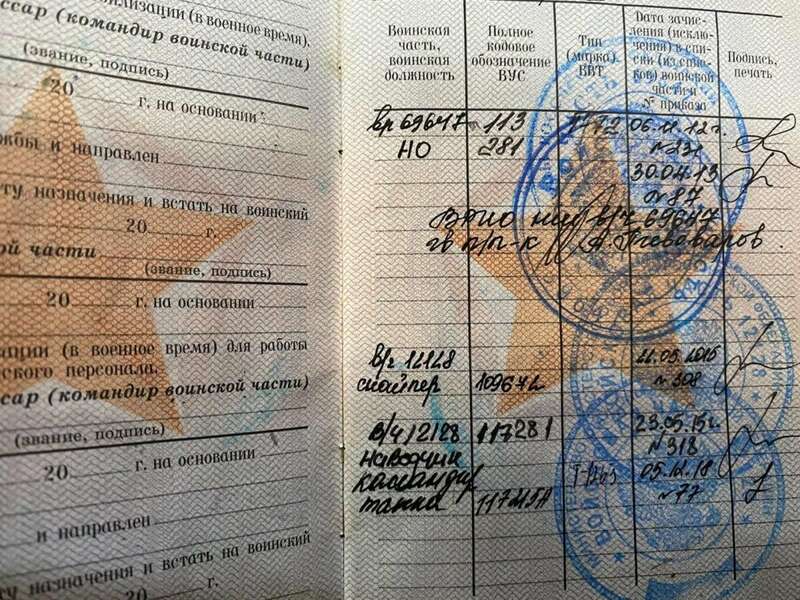 билизации (в военное время),
ссар (командир воинской части)
(звание, подпись)
20 г. на основании
жбы и направлен
ту назначения и встать на воинский
20 г.
ой части
(звание, подпись)
20 г. на основании
ации (в военное время) для работы
ского персонала.
ссар (командир воинской части)
(звание, подпись)
20 г. на основании
и направлен
ту назначения и встать на воинский
20 г.
Воинская часть, воинская должность
Полное кодовое обозначение ВУС
Тип (марка) ВВТ
Дата зачисления (исключения) в списки (из списков) воинской части и № приказа
Подпись, печать
в/ч 69647 113 Т72 06.11.12г.
НО 281 №231
30.04.13
№87,
ВРИО НШ в/ч 69647
гв п/п-к А. Пивоваров
в/ч 12128 22.05.2015
снайпер 109672 №308
в/ч 12128 117281 23.05.15г.
наводчик №318
командир 05.11.18
танка №77